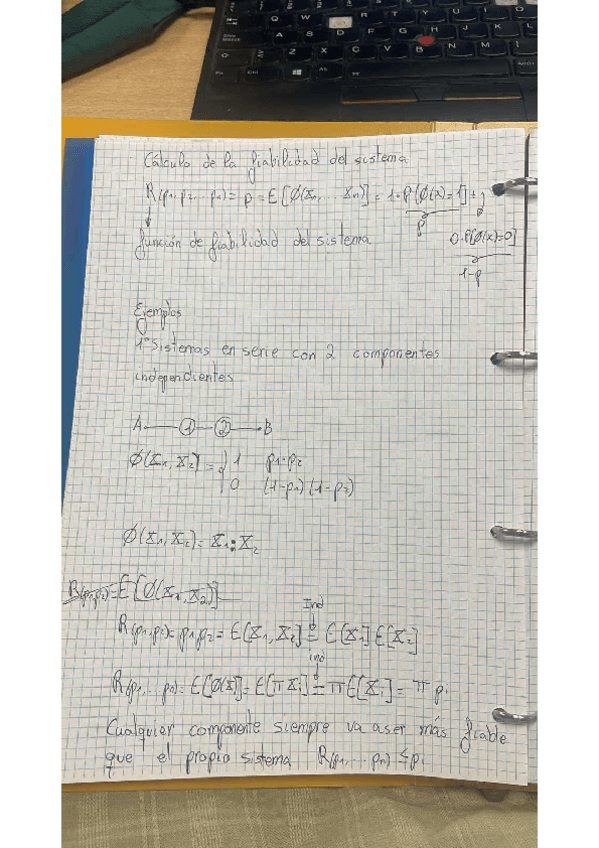 Cálculo de la fiabilidad del sistema
R(p1,p2,...pn) = p = E[Ø(X1,... Xn)] = 1·P[Ø(X)=1] +
p
0·P[Ø(X)=0]
1-p
función de fiabilidad del sistema
Ejemplos
1º Sistemas en serie con 2 componentes
independientes
A 1 2 B
Ø(X1, X2) = { 1 p1·p2
0 (1-p1)(1-p2)
Ø(X1, X2) = X1·X2
R(p1,p2) = E[Ø(X1,X2)]
Ind
R(p1,p2) = p1p2 = E[X1,X2] = E[X1]E[X2]
ind
R(p1,...pn) = E[Ø(X)] = E[πXi] = πE[Xi] = π pi
Cualquier componente siempre va a ser más fiable
que el propio sistema R(p1,...pn) ≤ pi